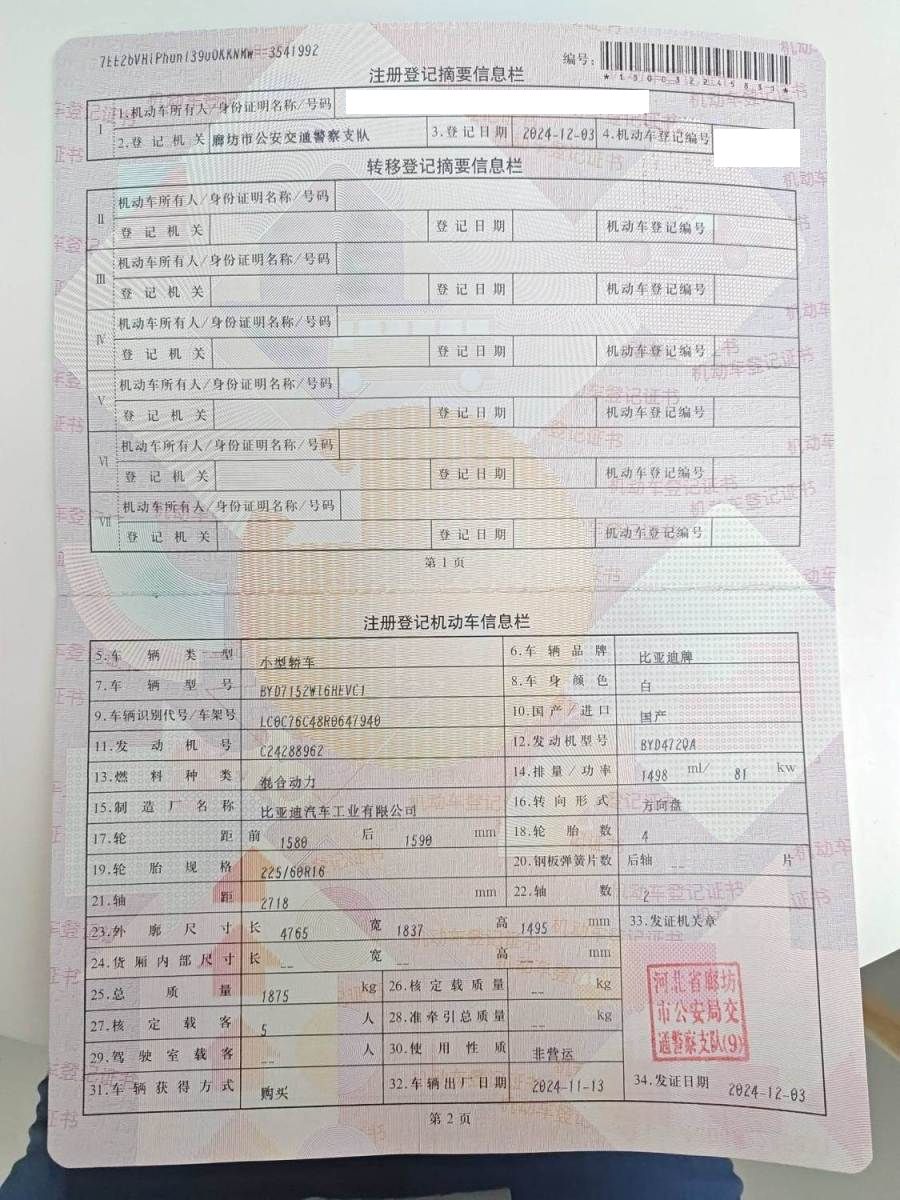 7Et2bVHiPhun139uOKKNMw==3541992
编号:
*130032245833*
注册登记摘要信息栏
I 1.机动车所有人/身份证明名称/号码
2.登记机关 廊坊市公安交通警察支队 3.登记日期 2024-12-03 4.机动车登记编号
转移登记摘要信息栏
II 机动车所有人/身份证明名称/号码
登记机关 登记日期 机动车登记编号
III 机动车所有人/身份证明名称/号码
登记机关 登记日期 机动车登记编号
IV 机动车所有人/身份证明名称/号码
登记机关 登记日期 机动车登记编号
V 机动车所有人/身份证明名称/号码
登记机关 登记日期 机动车登记编号
VI 机动车所有人/身份证明名称/号码
登记机关 登记日期 机动车登记编号
VII 机动车所有人/身份证明名称/号码
登记机关 登记日期 机动车登记编号
第1页
注册登记机动车信息栏
5.车辆类型 小型轿车 6.车辆品牌 比亚迪牌
7.车辆型号 BYD7152WT6HEVC1 8.车身颜色 白
9.车辆识别代号/车架号 LC0C76C48R0647940 10.国产/进口 国产
11.发动机号 C24288962 12.发动机型号 BYD472QA
13.燃料种类 混合动力 14.排量/功率 1498 ml/ 81 kw
15.制造厂名称 比亚迪汽车工业有限公司 16.转向形式 方向盘
17.轮距 前 1580 后 1590 mm 18.轮胎数 4
19.轮胎规格 225/60R16 20.钢板弹簧片数 后轴 -- 片
21.轴距 2718 mm 22.轴数 2
23.外廓尺寸 长 4765 宽 1837 高 1495 mm 33.发证机关章
24.货厢内部尺寸 长 -- 宽 -- 高 -- mm
25.总质量 1875 kg 26.核定载质量 -- kg
27.核定载客 5 人 28.准牵引总质量 -- kg
29.驾驶室载客 -- 人 30.使用性质 非营运
河北省廊坊
市公安局交
通警察支队(9)
31.车辆获得方式 购买 32.车辆出厂日期 2024-11-13 34.发证日期 2024-12-03
第2页